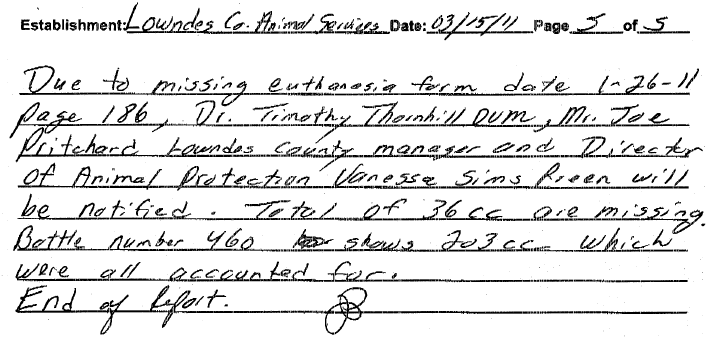 Establishment: Lowndes Co. Animal Services Date: 03/15/11 Page 5 of 5
Due to missing euthanasia form date 1-26-11
page 186, Dr. Timothy Thornhill DVM, Mr. Joe
Pritchard Lowndes County manager and Director
of Animal Protection Vanessa Sims Green will
be notified. Total of 36 cc are missing.
Bottle number 460 shows 203 cc which
were all accounted for.
End of Report.